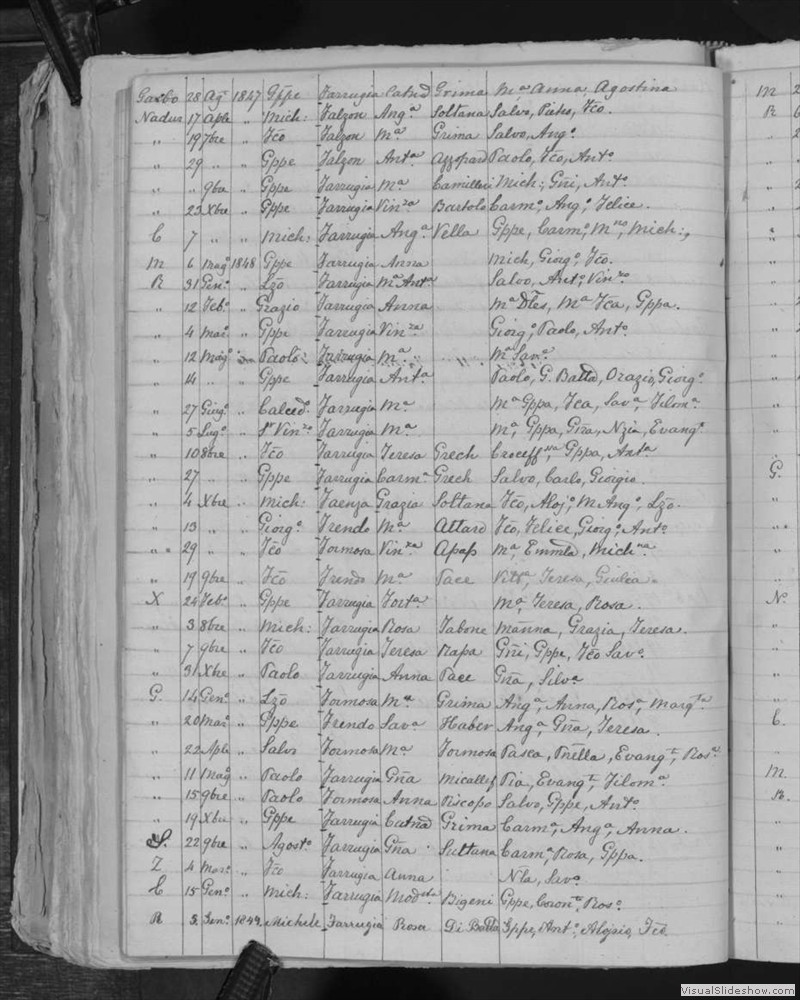 Garbo 28 Agº 1847 Gppe Farrugia Catnd Grima Mª Anna, Agostina
Nadur 17 Aple " Mich: Falzon Angª Soltana Salvo, Pietro, Fcõ.
" 19 7bre " Fcõ Falzon Mª Grima Salvo, Angº
" 29 " " Gppe Falzon Antª Azzopard Paolo, Fcõ, Antº
" " 9bre " Gppe Farrugia Mª Camilleri Mich:, Gñi, Antº
" 22 Xbre " Gppe Farrugia Vinza Bartolo Carmº, Angº, Felice.
C 7 " " Mich: Farrugia Angª Vella Gppe, Carmº, Mich:,
M 6 Magº 1848 Gppe Farrugia Anna Mich, Giorgº, Fcõ.
R 31 Genº " Lzõ Farrugia Mª Antª Salvo, Antº, Vinzo
" 12 Febº " Grazio Farrugia Anna Mª Dles, Mª Fca, Gppa.
" 4 Marº " Gppe Farrugia Vinza Giorgº, Paolo, Antº
" 12 Magº Paolo Farrugia Mª Mª Savª
" 14 " " Gppe Farrugia Antª Paolo, G. Batta, Orazio, Giorgº
" 27 Giugº " Calcedº Farrugia Mª Mª Gppa, Fca, Savª, Filomª
" 5 Lugº " Vinzo Farrugia Mª Mª, Gppa, Gña, Nzia, Evangª
" 10 8bre " Fcõ Farrugia Teresa Grech Croceffssa, Gppa, Antª
" 27 " " Gppe Farrugia Carmª Grech Salvo, Carlo, Giorgio.
" 4 Xbre " Mich: Faenza Grazia Soltana Fcõ, Alojº, M Angº, Lzõ.
" 13 " " Giorgº Frendo Mª Attard Fcõ, Felice, Giorgº, Antº
" 29 " " Fcõ Formosa Vinza Apaps Mª, Emmla, Michna
" 19 9bre " Fcõ Frendo Mª Pace Vitta, Teresa, Giulia.
X 24 Febº " Gppe Farrugia Fortª Mª, Teresa, Rosa.
" 3 8bre " Mich: Farrugia Rosa Tabone Mañna, Grazia, Teresa.
" 7 9bre " Fcõ Farrugia Teresa Rapa Gñi, Gppe, Fcõ Savº
" 31 Xbre " Paolo Farrugia Anna Pace Gña, Silvª
G. 14 Genº " Lzõ Formosa Mª Grima Angª, Anna, Rosª, Margta
" 20 Marº " Gppe Frendo Savª Haber Angª, Gña, Teresa.
" 22 Aple " Salvi Formosa Mª Formosa Pasca, Pñlla, Evangª, Rosª
" 11 Magº " Paolo Farrugia Gña Micallef Pia, Evangª, Filomª
" 15 9bre " Paolo Formosa Anna Piscopo Salvo, Gppe, Antº
" 19 Xbre " Gppe Farrugia Catnd Grima Carmª, Angª, Anna.
S. 22 9bre " Agostº Farrugia Gña Sultana Carmª, Rosa, Gppa.
Z 4 Marº " Fcõ Farrugia Anna Nta, Savª
C 15 Genº " Mich: Farrugia Modsta Bigeni Gppe, Coronª, Rosª
R 3. Genº 1849. Michele Farrugia Rosa Di Batta Gppe, Antº, Alojsio, Fcõ.
VisualSlideshow.com